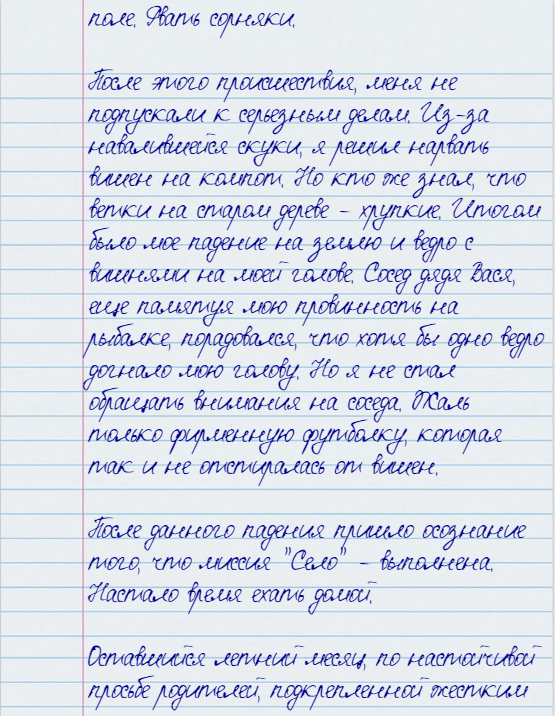 поле. Рвать сорняки.
После этого происшествия, меня не
подпускали к серьезным делам. Из-за
навалившейся скуки, я решил нарвать
вишен на компот. Но кто же знал, что
ветки на старом дереве - хрупкие. Итогом
было мое падение на землю и ведро с
вишнями на моей голове. Сосед дядя Вася,
еще памятуя мою провинность на
рыбалке, порадовался, что хотя бы одно ведро
догнало мою голову. Но я не стал
обращать внимания на соседа. Жаль
только фирменную футболку, которая
так и не отстиралась от вишен.
После данного падения пришло осознание
того, что миссия "Село" - выполнена.
Настало время ехать домой.
Оставшийся летний месяц, по настойчивой
просьбе родителей, подкрепленной жестким